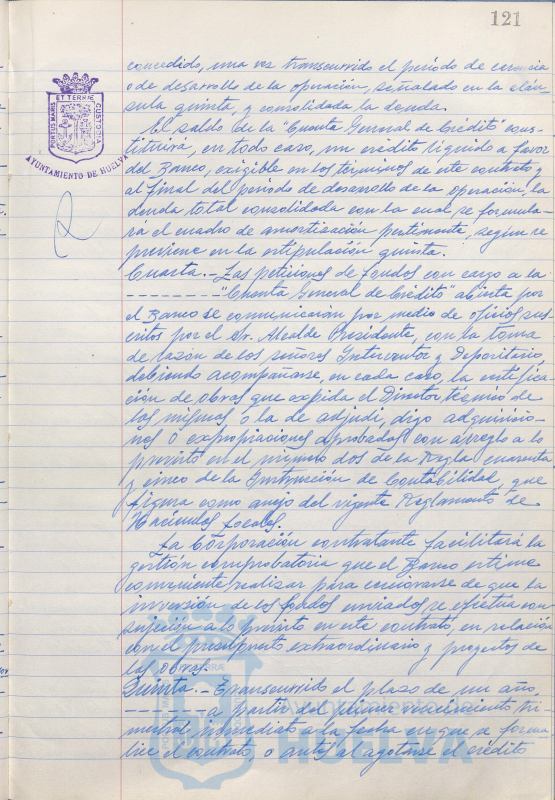 121
PORTUS MARIS
ET TERRÆ
CUSTODIA
AYUNTAMIENTO DE HUELVA
concedido, una vez transcurrido el período de carencia
o de desarrollo de la operación, señalado en la cláu-
sula quinta, y consolidada la deuda.
El saldo de la "Cuenta General de Crédito" cons-
tituirá, en todo caso, un crédito líquido a favor
del Banco, exigible en los términos de este contrato y
al final del período de desarrollo de la operación, la
deuda total consolidada con la cual se formula-
rá el cuadro de amortización pertinente, según se
previene en la estipulación quinta.
Cuarta.- Las peticiones de fondos con cargo a la
-------- "Cuenta General de Crédito" abierta por
el Banco se comunicarán por medio de oficios sus-
critos por el Sr. Alcalde Presidente, con la toma
de razón de los señores Interventor y Depositario,
debiendo acompañarse, en cada caso, la certifica-
ción de obras que expida el Director técnico de
las mismas ó la de adjudi, digo adquisicio-
nes ó expropiaciones aprobadas con arreglo a lo
previsto en el número dos de la Regla cuarenta
y cinco de la Instrucción de Contabilidad, que
figura como anejo del vigente Reglamento de
Haciendas Locales.
La Corporación contratante facilitará la
gestión comprobatoria que el Banco estime
conveniente realizar para cerciorarse de que la
inversión de los fondos enviados se efectua con
sujección a lo previsto en este contrato, en relación
con el presupuesto extraordinario y proyectos de
las obras.
Quinta.- Transcurrido el plazo de un año,
-------- a partir del primer vencimiento tri-
mestral inmediato a la fecha en que se forma-
lice el contrato, o antes al agotarse el crédito
HUELVA